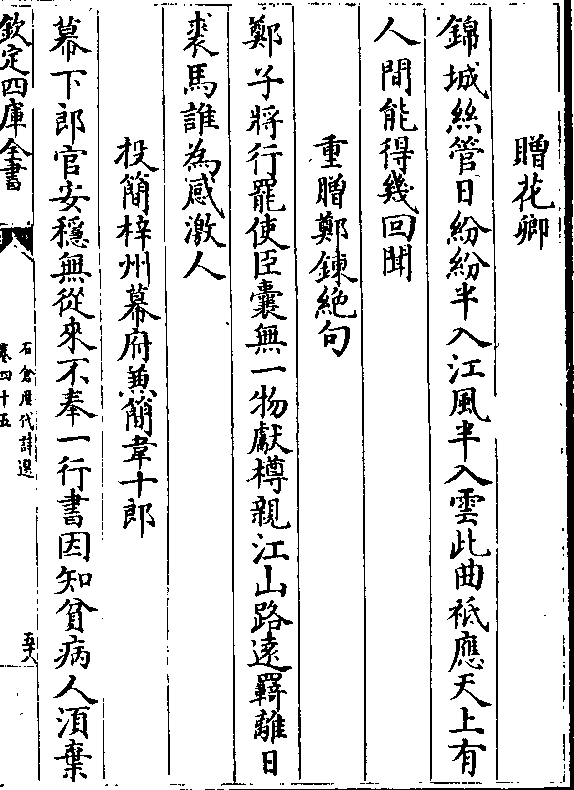 贈花卿
錦城絲管日紛紛半入江風半入雲此曲秪應天上有
人間能得幾回聞
重贈鄭鍊絕句
鄭子將行罷使臣囊無一物獻樽親江山路遠羇離日
裘馬誰為感激人
投簡梓州幕府兼簡韋十郎
幕下郎官安穩無從來不奉一行書因知貧病人湏棄
欽定四庫全書
石倉歴代詩選
卷四十五